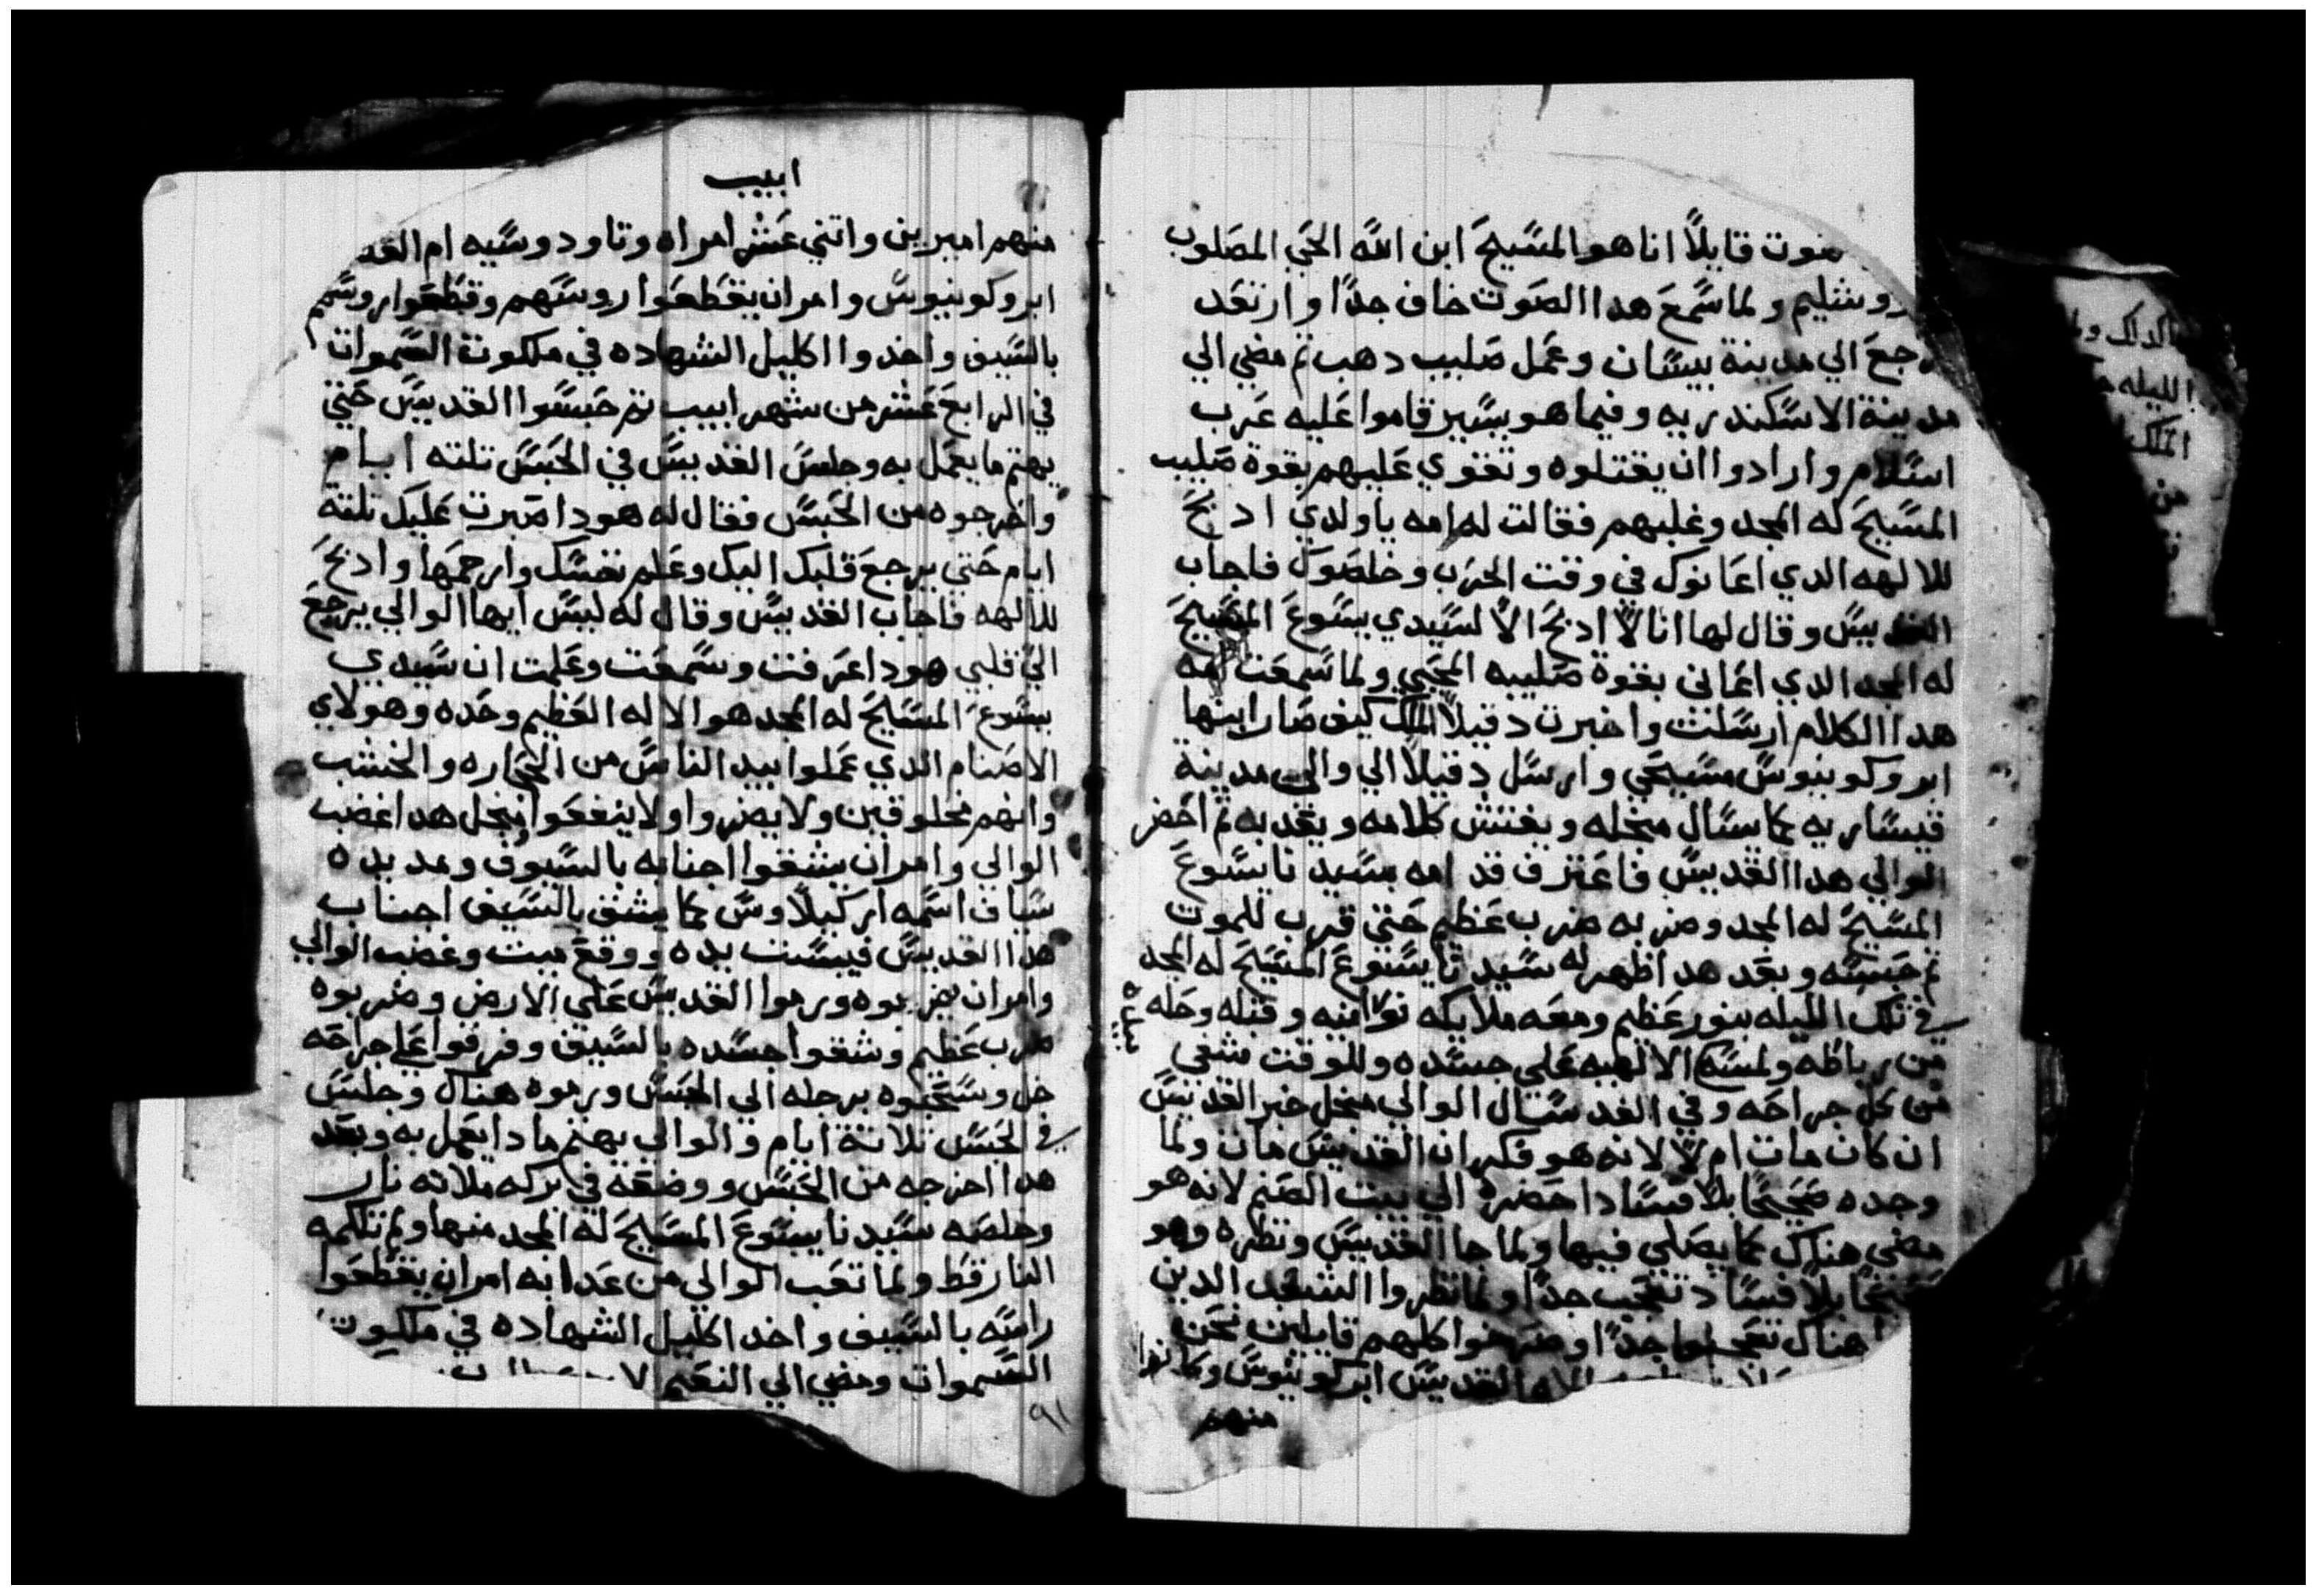 صوت قايلاً انا هو المسيح ابن الله الحي المصلوب
روشليم ولما سمع هدا الصوت خاف جداً وارتعد
رجع الي مدينة بيسان وعمل صليب دهب تم مضي الي
مدينة الاسكندريه وفيما هو يسير قاموا عليه عرب
اسلام وارادوا ان يقتلوه وتقوي عليهم بقوة صليب
المسيح له المجد وغلبهم فقالت له امه ياولدي ادبح
للالهه الدي اعانوك في وقت الحرب وخلصوك فاجاب
القديس وقال لها انا لا ادبح الا لسيدي يسوع المسيح
له المجد الدي اعانني بقوة صليبه المحيي ولما سمعت امه
هدا الكلام ارسلت واخبرت دقيلا الملك كيف صار ابنها
ابروكونيوس مسيحي وارسل دقيلا الي والي مدينة
قيساريه كما يسال منجله ويفتش كلامه ويعدبه تم احضر
الوالي هدا القديس فاعترف قدامه بسيدنا يسوع
المسيح له المجد وضربه ضرب عظيم حتي قرب للموت
تم حبسه وبعد هدا ظهر له سيدنا يسوع المسيح له المجد
في تلك الليله بنور عظيم ومعه ملايكه نورانيه وقبله وحله
من رباطه ولمسه الالهيه علي جسده وللوقت شفي
من كل جراحه وفي الغد سال الوالي منجل خبر القديس
ان كان مات ام لا لانه هو فكر ان القديس مات ولما
وجده صحيحاً بلا فسادا حضره الي بيت الصنم لانه هو
مضي هناك كما يصلي فيها ولما جا القديس ونظره وهو
صحيحاً بلا فساد تعجب جداً ولما نظروا الشعب الدين
هناك تعجبوا جداً وصرخوا كلهم قايلين نحن
الاه القديس ابركونيوس وكانوا
منهم
ابيب
منهم اميرين واتني عشر امراه وتاودوسيه ام القد
ابروكونيوس وامر ان يقطعوا روسهم وقطعوا روسهم
بالسيف واخدوا اكليل الشهاده في ملكوت السموات
في الرابع عشر من شهر ابيب تم حبسوا القديس حتي
يهتم ما يعمل به وجلس القديس في الحبس تلته ايام
واخرجوه من الحبس فقال له هودا صبرت عليك تلتة
ايام حتي يرجع قلبك اليك وعلم نفسك وارحمها وادبح
للالهه فاجاب القديس وقال له ليس ايها الوالي يرجع
الي قلبي هودا عرفت وسمعت وعلمت ان سيدي
يسوع المسيح له المجد هو الاله العظيم وحده وهولاي
الاصنام الدي عملوا بيد الناس من الحجاره والخشب
وانهم مخلوقين ولا يضروا ولا ينفعوا منجل هدا غضب
الوالي وامر ان يشقوا اجنابه بالسيوف ومد يده
سياف اسمه اركيلاوس كما يشق بالسيف اجناب
هدا القديس فيبست يده ووقع ميت وغضب الوالي
وامر ان يضربوه ورموا القديس علي الارض وضربوه
ضرب عظيم وشقوا جسده بالسيف وفرقوا علي جراحه
خل وسحبوه برجله الي الحبس ورموه هناك وجلس
في الحبس تلاتة ايام والوالي يهتم مادا يعمل به وبعد
هدا اخرجه من الحبس ووضعه في بركه ملانه نار
وخلصه سيدنا يسوع المسيح له المجد منها ولم تلكمه
النار قط ولما تعب الوالي من عدابه امر ان يقطعوا
راسه بالسيف واخد اكليل الشهاده في ملكوت
السموات ومضي الي النعيم
٩١